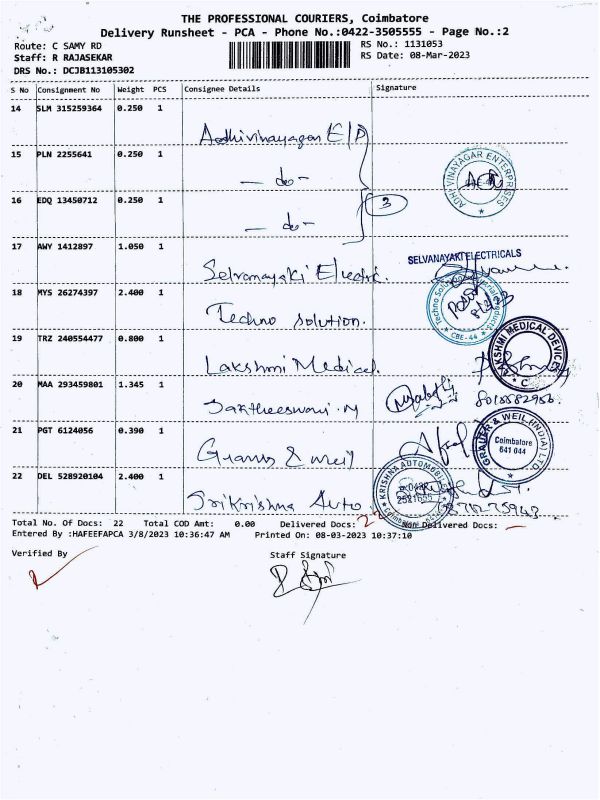 THE PROFESSIONAL COURIERS, Coimbatore
Delivery Runsheet - PCA - Phone No.:0422-3505555 - Page No.:2
Route: C SAMY RD
RS No.: 1131053
Staff: R RAJASEKAR
RS Date: 08-Mar-2023
DRS No.: DCJB113105302
S No Consignment No Weight PCS Consignee Details Signature
14 SLM 315259364 0.250 1
Aadhivinayagar E/P
15 PLN 2255641 0.250 1
— do -
ADHI VINAYAGAR ENTERPRISES
16 EDQ 13450712 0.250 1
— do -
3
17 AWY 1412897 1.050 1
Selvanayaki Electri.
SELVANAYAKI ELECTRICALS
18 MYS 26274397 2.400 1
Techno Solution.
CBE-44
19 TRZ 240554477 0.800 1
Lakshmi Medical
LAKSHMI MEDICAL DEVICE
20 MAA 293459801 1.345 1
21 PGT 6124056 0.390 1
Grauer & weil
GRAUER & WEIL (INDIA) LTD.
Coimbatore
641 044
22 DEL 528920104 2.400 1
Sri Krishna Auto
KRISHNA AUTOMOBI
Total No. Of Docs: 22 Total COD Amt: 0.00 Delivered Docs: 22 Non Delivered Docs: —
Entered By :HAFEEFAPCA 3/8/2023 10:36:47 AM Printed On: 08-03-2023 10:37:10
Verified By
Staff Signature